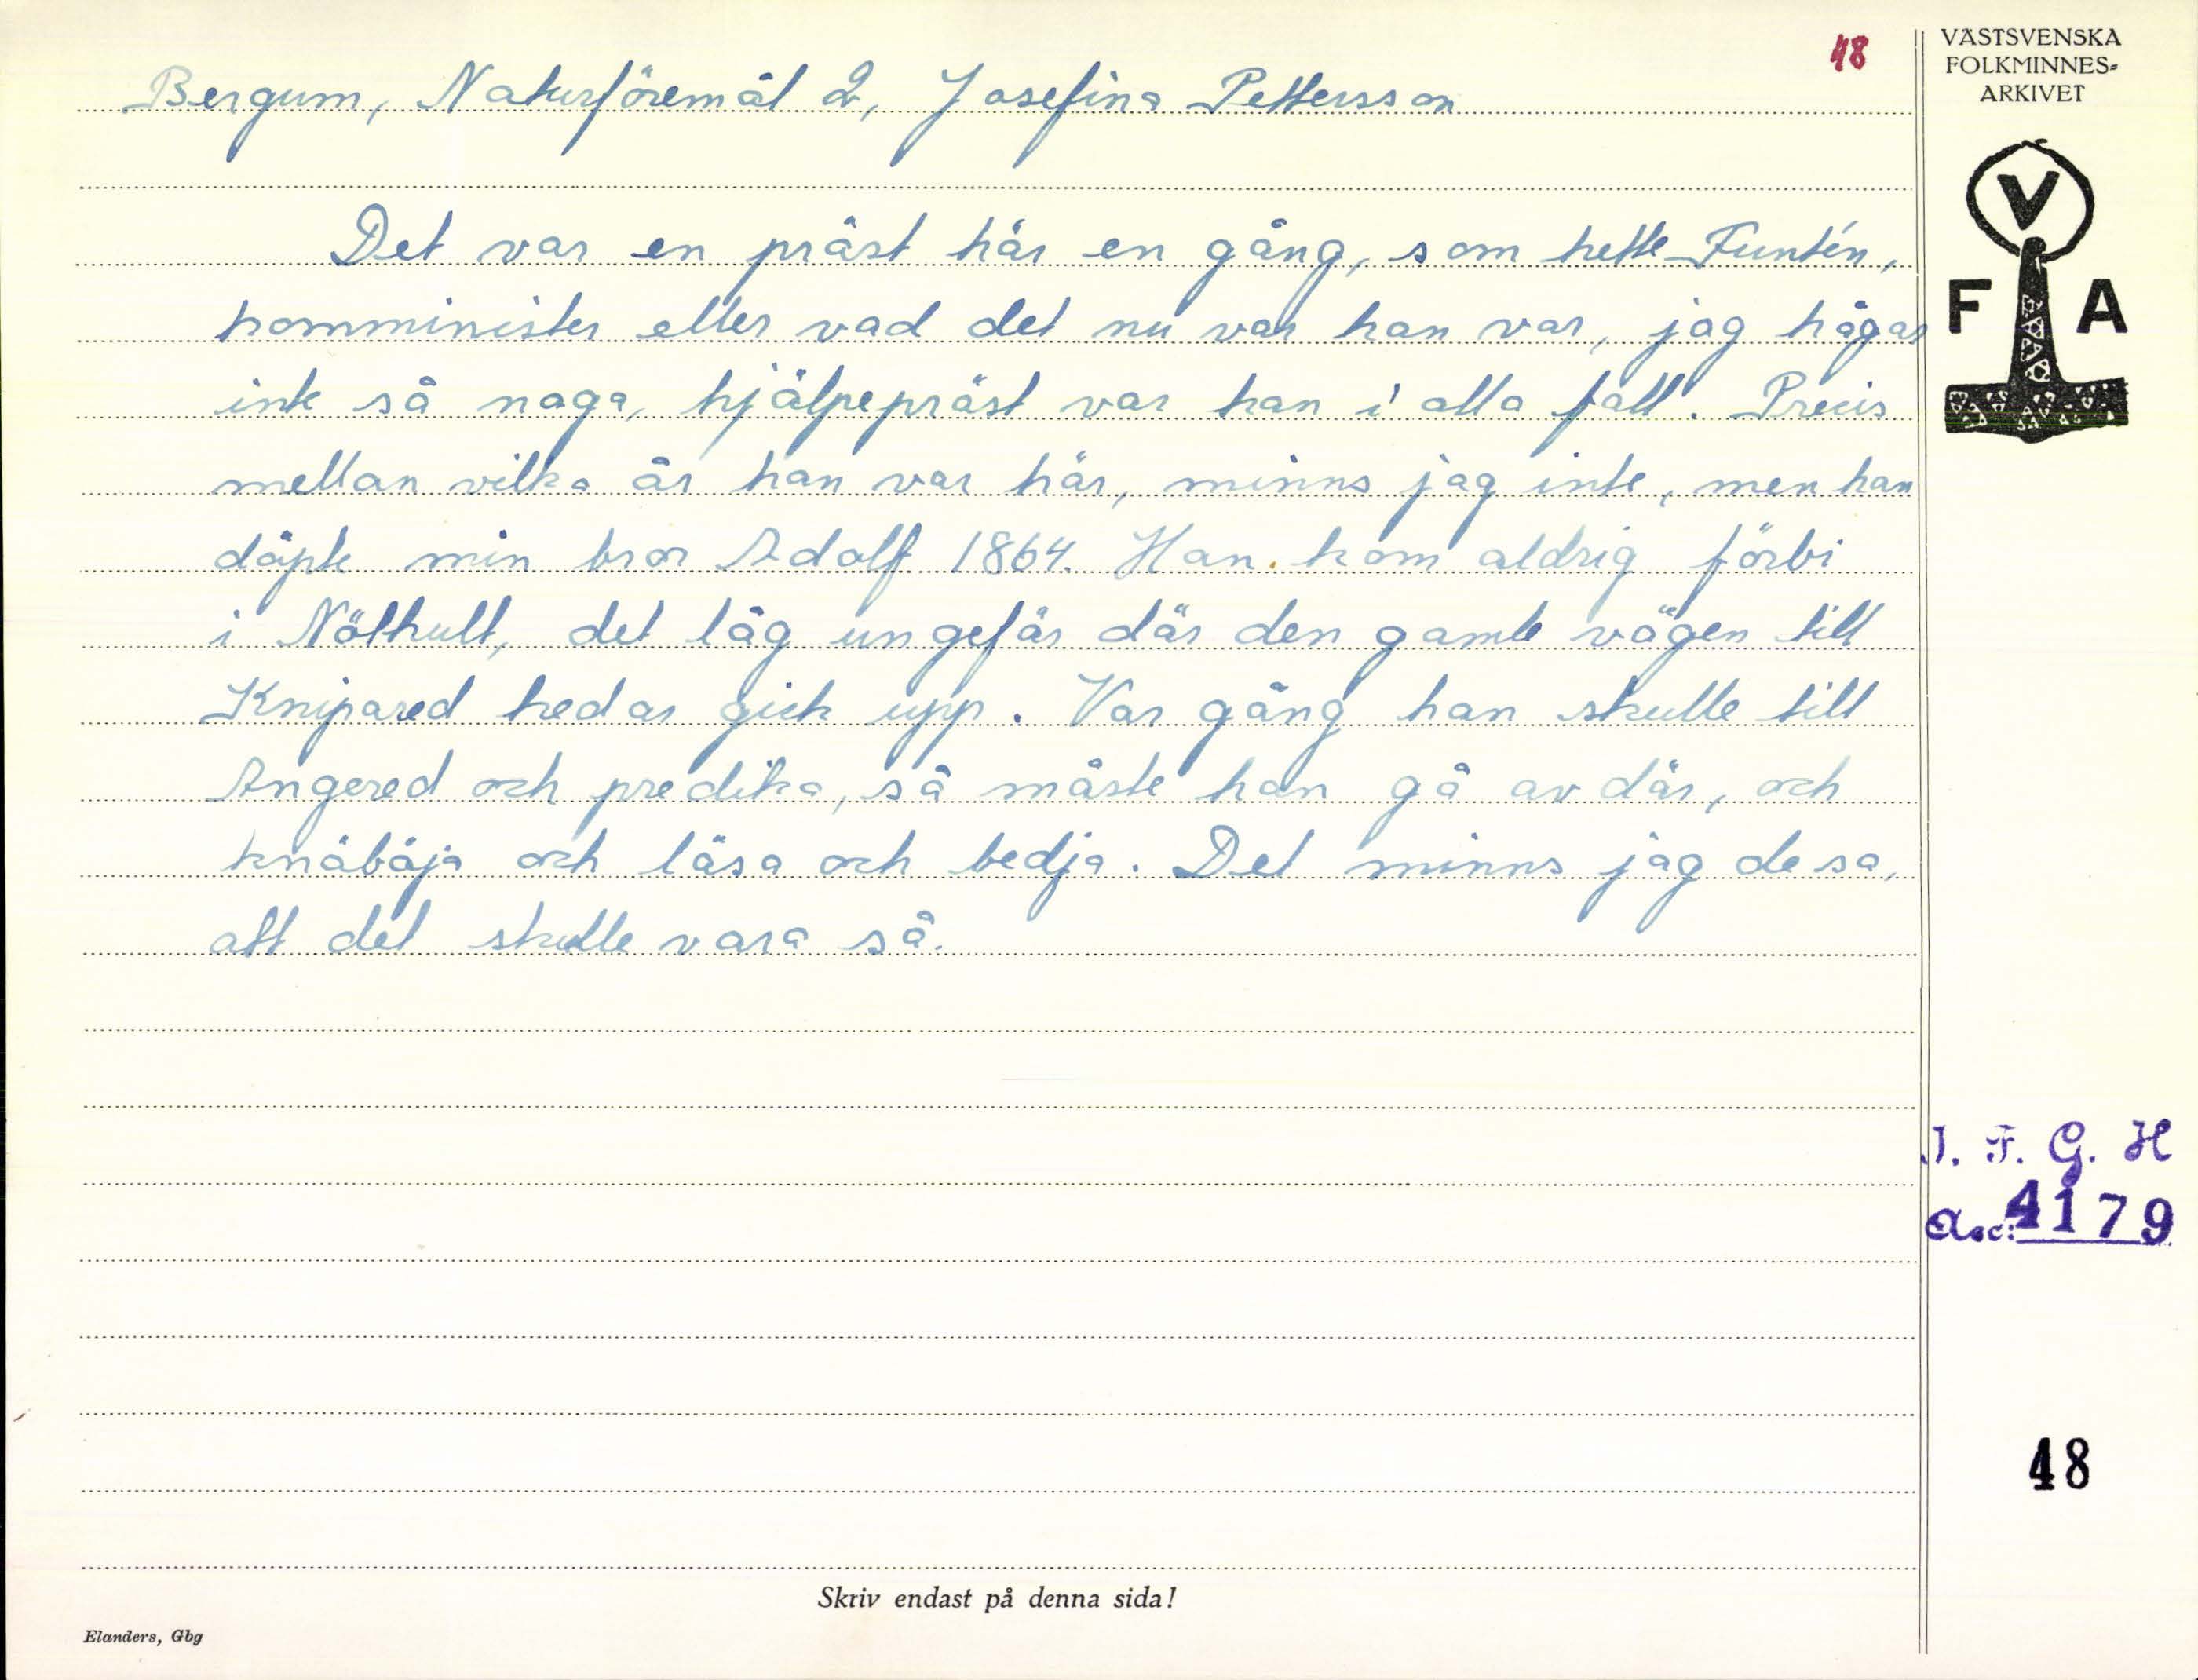 48
Bergum, Naturföremål 2, Josefina Pettersson
Det var en präst här en gång, som hette Funtén,
komminister eller vad det nu var han var, jag hågas
inte så noga, hjälpepräst var han i alla fall. Precis
mellan vilka år han var här, minns jag inte, men han
döpte min bror Adolf 1864. Han kom aldrig förbi
i Nölhult, det låg ungefär där den gamle vägen till
Knipared hedar gick upp. Var gång han skulle till
Angered och predika, så måste han gå av där, och
knäböja och läsa och bedja. Det minns jag de sa,
att det skulle vara så.
VÄSTSVENSKA
FOLKMINNES-
ARKIVET
V
F A
I. F. G. H
Acc: 4179
48
Skriv endast på denna sida!
Elanders, Gbg